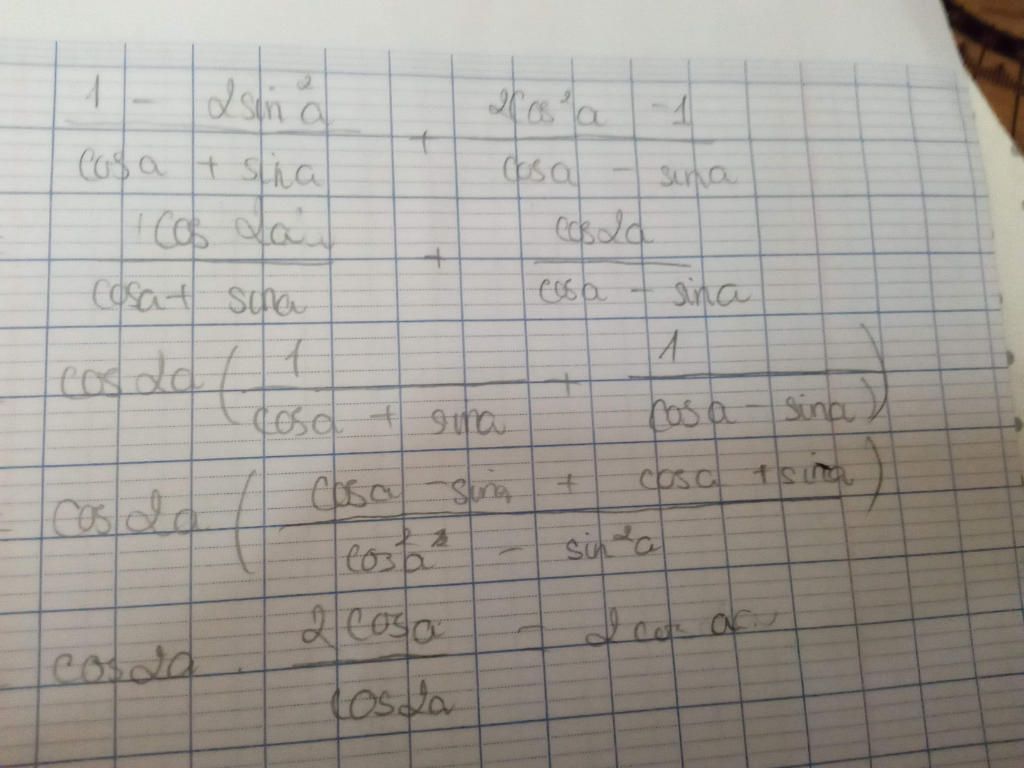 1 - 2sin²a / cosa + sina + 2cos²a - 1 / cosa - sina
= cos 2a / cosa + sina + cos2a / cosa - sina
cos2a ( 1 / cosa + sina + 1 / cosa - sina )
= cos2a ( cosa - sina + cosa + sina / cos²a - sin²a )
cos2a . 2cosa / cos2a = 2cos a